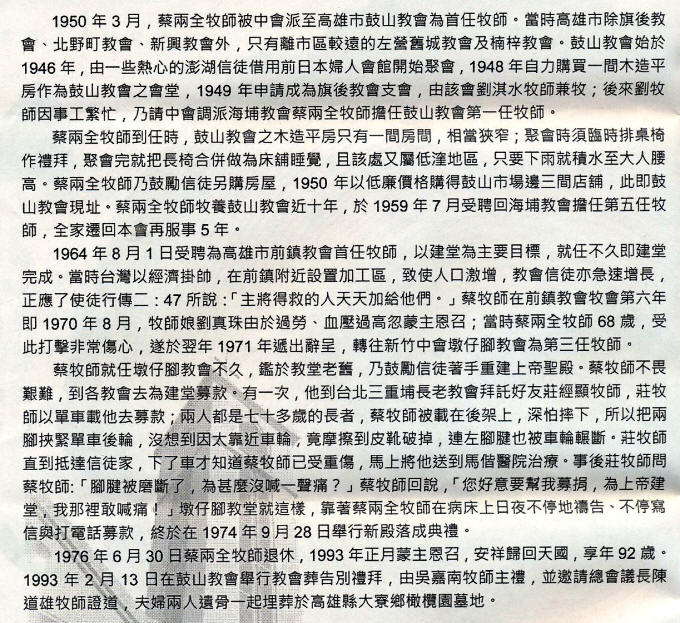 1950 年 3 月，蔡兩全牧師被中會派至高雄市鼓山教會為首任牧師。當時高雄市除旗後教
會、北野町教會、新興教會外，只有離市區較遠的左營舊城教會及楠梓教會。鼓山教會始於
1946 年，由一些熱心的澎湖信徒借用前日本婦人會館開始聚會，1948 年自力購買一間木造平
房作為鼓山教會之會堂，1949 年申請成為旗後教會支會，由該會劉淇水牧師兼牧；後來劉牧
師因事工繁忙，乃請中會調派海埔教會蔡兩全牧師擔任鼓山教會第一任牧師。
蔡兩全牧師到任時，鼓山教會之木造平房只有一間房間，相當狹窄；聚會時須臨時排桌椅
作禮拜，聚會完就把長椅合併做為床舖睡覺，且該處又屬低漥地區，只要下雨就積水至大人腰
高。蔡兩全牧師乃鼓勵信徒另購房屋，1950 年以低廉價格購得鼓山市場邊三間店舖，此即鼓
山教會現址。蔡兩全牧師牧養鼓山教會近十年，於 1959 年 7 月受聘回海埔教會擔任第五任牧
師，全家遷回本會再服事 5 年。
1964 年 8 月 1 日受聘為高雄市前鎮教會首任牧師，以建堂為主要目標，就任不久即建堂
完成。當時台灣以經濟掛帥，在前鎮附近設置加工區，致使人口激增，教會信徒亦急速增長，
正應了使徒行傳二：47 所說：「主將得救的人天天加給他們。」蔡牧師在前鎮教會牧會第六年
即 1970 年 8 月，牧師娘劉真珠由於過勞、血壓過高忽蒙主恩召；當時蔡兩全牧師 68 歲，受
此打擊非常傷心，遂於翌年 1971 年遞出辭呈，轉往新竹中會墩仔腳教會為第三任牧師。
蔡牧師就任墩仔腳教會不久，鑑於教堂老舊，乃鼓勵信徒著手重建上帝聖殿。蔡牧師不畏
艱難，到各教會去為建堂募款。有一次，他到台北三重埔長老教會拜託好友莊經顯牧師，莊牧
師以單車載他去募款；兩人都是七十多歲的長者，蔡牧師被載在後架上，深怕摔下，所以把兩
腳挾緊單車後輪，沒想到因太靠近車輪，竟摩擦到皮靴破掉，連左腳腱也被車輪輾斷。莊牧師
直到抵達信徒家，下了車才知道蔡牧師已受重傷，馬上將他送到馬偕醫院治療。事後莊牧師問
蔡牧師:「腳腱被磨斷了，為甚麼沒喊一聲痛？」蔡牧師回說，「您好意要幫我募捐，為上帝建
堂，我那裡敢喊痛！」墩仔腳教堂就這樣，靠著蔡兩全牧師在病床上日夜不停地禱告、不停寫
信與打電話募款，終於在 1974 年 9 月 28 日舉行新殿落成典禮。
1976 年 6 月 30 日蔡兩全牧師退休，1993 年正月蒙主恩召，安祥歸回天國，享年 92 歲。
1993 年 2 月 13 日在鼓山教會舉行教會葬告別禮拜，由吳嘉南牧師主禮，並邀請總會議長陳
道雄牧師證道，夫婦兩人遺骨一起埋葬於高雄縣大寮鄉橄欖園墓地。